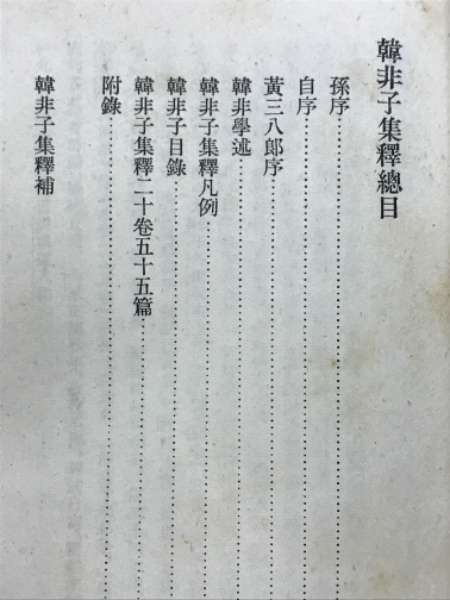 韓非子集釋總目
孫序
自序
黃三八郎序
韓非學述
韓非子集釋凡例
韓非子目錄
韓非子集釋二十卷五十五篇
附錄
韓非子集釋補